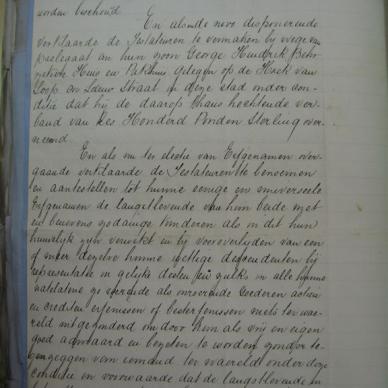 worden beschouwd.
En alsnu de novo disponeerende
verklaarde de Testateuren te vermaken bij wege van
praelegaat aan hun zoon George Hendrik
Huis en Pakhuis gelegen op de Hoek van
Loop en Leeuw Straat in deze stad onder con-
ditie dat hij de daarop thans hechtende ver-
band van zes Honderd Ponden Sterling over-
neemd.
En als nu ter electie van Erfgenamen over-
gaande verklaarde de Testateuren te benoemen
en aantestellen tot hunne eenige en universeele
Erfgenamen de langstlevende van hun beide met
en benevens zodanige kinderen als in dit hun
huwelijk zijn verwekt en bij vooroverlijden van een
of meer derzelve hunne wettige descendenten bij
representatie in gelijke deelen en zulks in alle hunne
natelatene zo roerende als onroerende Goederen actien
en crediten erfenissen of besterfenissen niets ter wae-
reld uitgezonderd om door hem als vrij en eigen
goed aanvaard en bezeten te worden zonder te-
genzeggen van iemand ter waereld onder deze
conditie en voorwaarde dat de langstlevende in